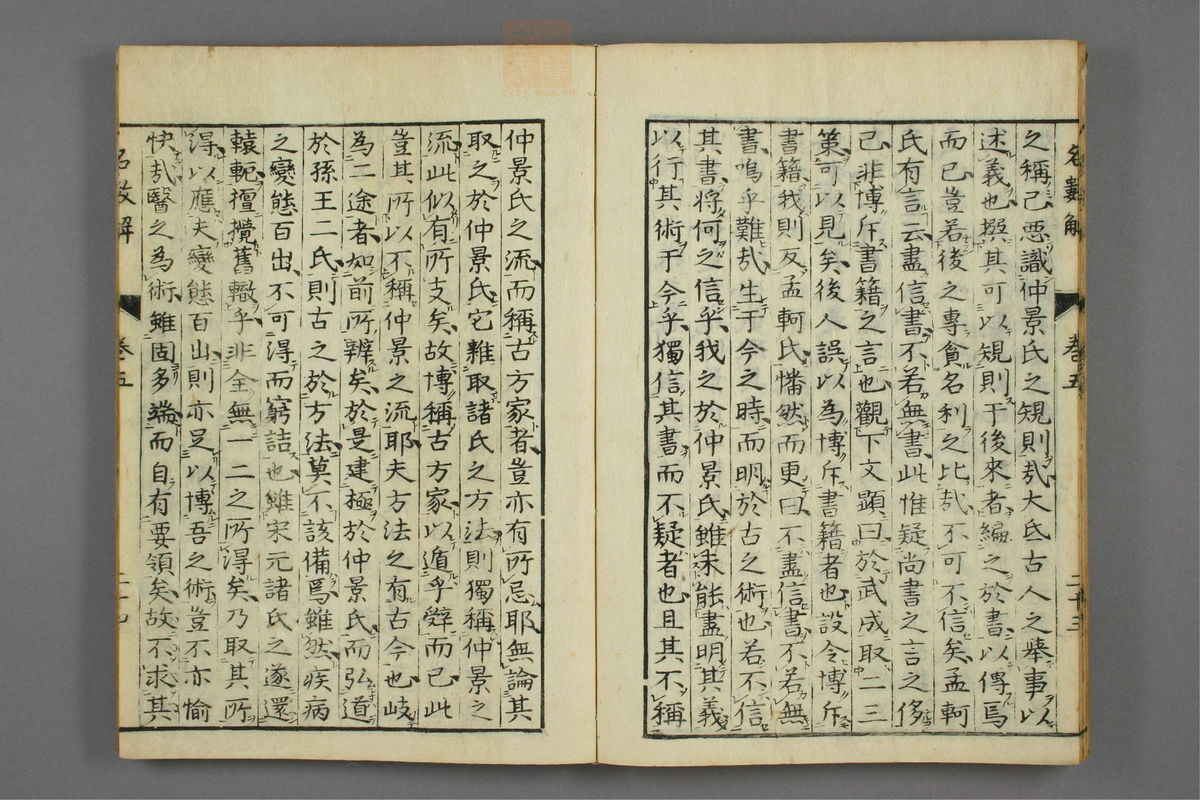 之稱己惡識仲景氏之規則哉大氐古人之舉事以
述義也撰其可以規則于後來者編之於書以傳焉
而已豈若後之專貪名利之比哉不可不信矣孟軻
氏有言云盡信書不若無書此惟疑尚書之言之侈
已非博斥書籍之言也觀下文顕曰於武成取二三
策可以見矣後人誤以為博斥書籍者也設令博斥
書籍我則反孟軻氏憣然而更曰不盡信書不若無
書嗚乎難哉生于今之時而明於古之術也若不信
其書將何之信乎我之於仲景氏雖未能盡明其義
以行其術于今乎獨信其書而不疑者也且其不稱
名數解
卷五
二十三
仲景氏之流而稱古方家者豈亦有所忌耶無論其
取之於仲景氏它雜取諸氏之方法則獨稱仲景之
流此似有所支矣故博稱古方家以遁乎辟而已此
豈其所以不稱仲景之流耶夫方法之有古今也岐
為二途者如前所辨矣於是建極於仲景氏而弘道
於孫王二氏則古之於方法莫不該備焉雖然疾病
之變態百出不可得而窮詰也雖宋元諸氏之遂還
轅軛擅攪舊轍乎非全無一二之所得矣乃取其所
得以應夫變態百出則亦足以博吾之術豈不亦愉
快哉醫之為術雖固多端而自有要領矣故不求其
名數解
卷五